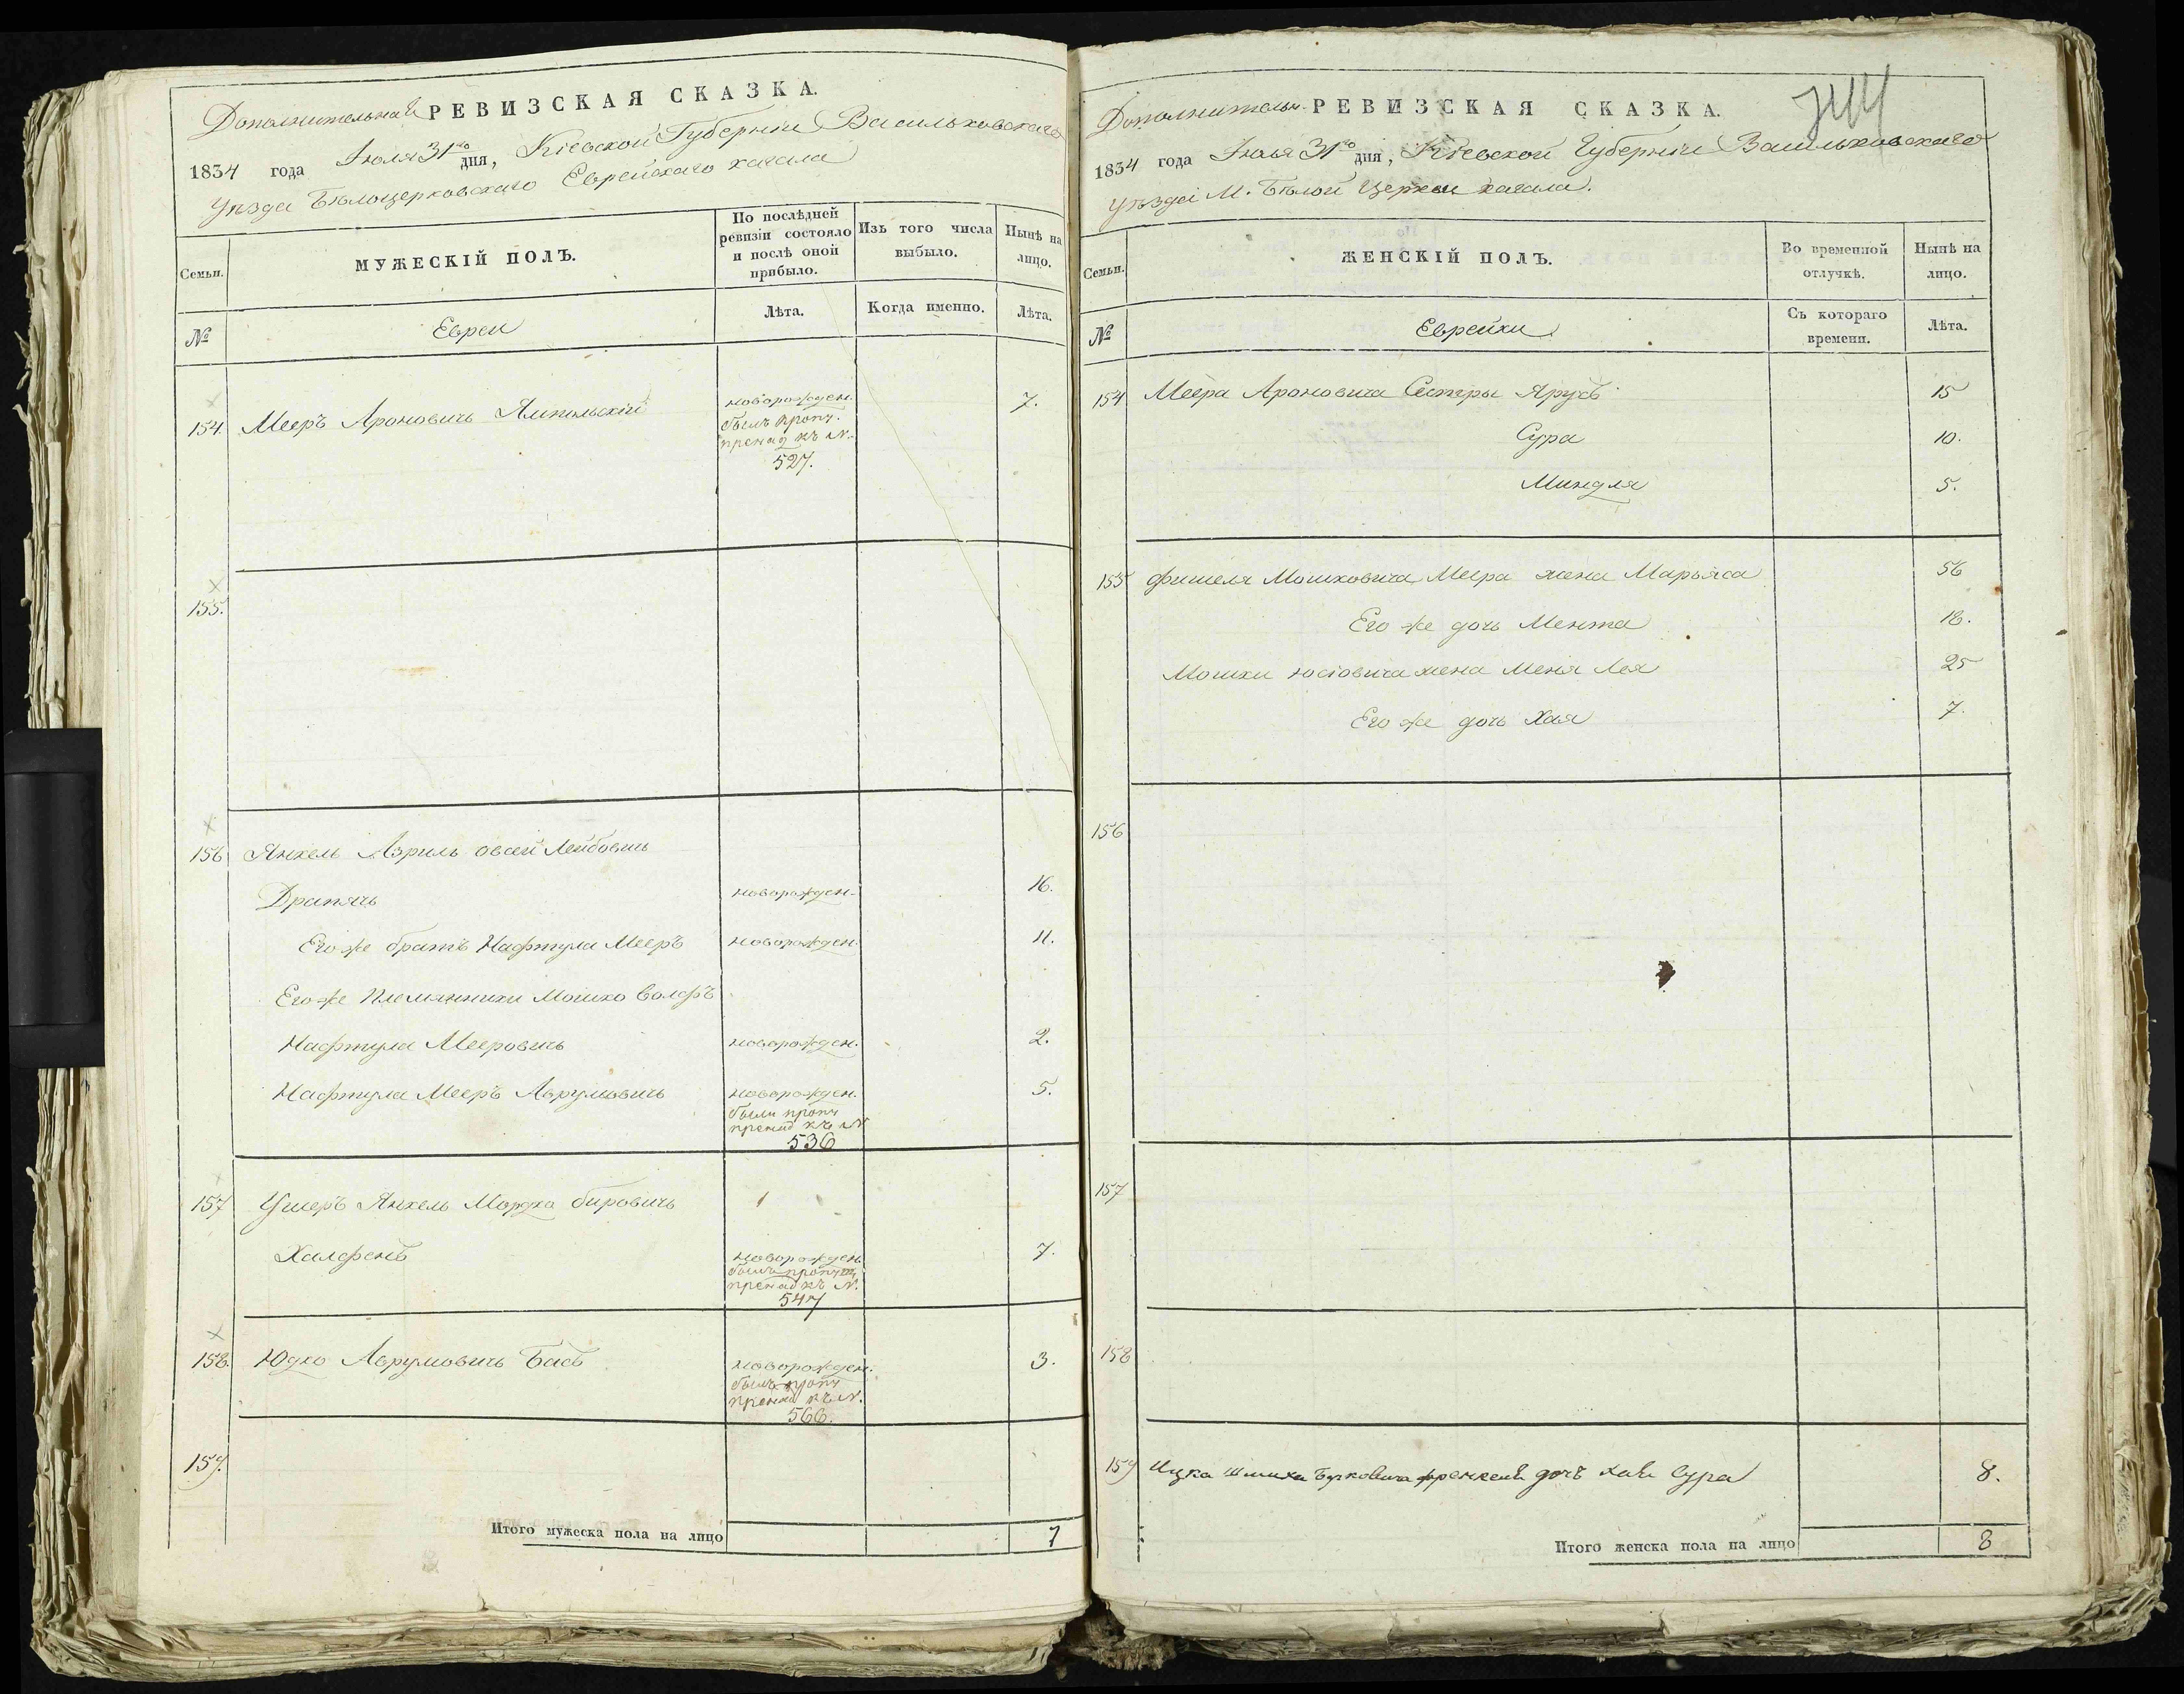 Дополнительная РЕВИЗСКАЯ СКАЗКА.
1834 года Іюля 31го дня, Кіевской Губерніи Васильковскаго
Уѣзда Бѣлоцерковскаго Еврейскаго кагала
Семьи.
МУЖЕСКІЙ ПОЛЪ.
По послѣдней
ревизіи состояло
и послѣ оной
прибыло.
Изъ того числа
выбыло.
Нынѣ на
лицо.
№
Евреи
Лѣта.
Когда именно.
Лѣта.
154. Мееръ Ароновичъ Ямпольскій новорожден. 7.
былъ пропу.
къ №.
527.
155.
156 Янкель Азриль Овсей Лейбовичъ
Драпячъ новорожден. 16.
Его же братъ Нафтула Мееръ новорожден. 11.
Его же Племянники Мошко Волфъ
Нафтула Мееровичъ новорожден. 2.
Нафтула Мееръ Аврумовичъ новорожден. 5.
были пропу
къ №
536
157 Ушеръ Янкель Мордко Бировичъ
Халфенъ новорожден. 7.
былъ пропущ
къ №.
547
158. Юдко Аврумовичъ Басъ новорожден. 3.
былъ пропу
къ №.
566.
159.
Итого мужеска пола на лицо 7
Дополнительн. РЕВИЗСКАЯ СКАЗКА.
1834 года Іюля 31го дня, Кіевской Губерніи Васильковскаго
Уѣзда М. Бѣлой Церкви кагала.
Семьи.
ЖЕНСКІЙ ПОЛЪ.
Во временной
отлучкѣ.
Нынѣ на
лицо.
№
Еврейки
Съ котораго
времени.
Лѣта.
154 Меера Ароновича Сестры 15
Сура 10.
Миндля 5.
155 Фишеля Мошковича Меера жена Марьяса 56
Его же дочь Мента 18.
Мошки Юсіовича жена Меня Лея 25
Его же дочь Хая 7.
156
157
158
159 Ицка Берковича дочь Хая Сура 8.
Итого женска пола на лицо 8